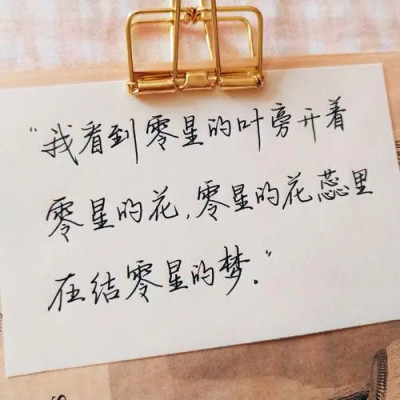 “我看到零星的叶旁开着
零星的花,零星的花蕊里
在结零星的梦.”